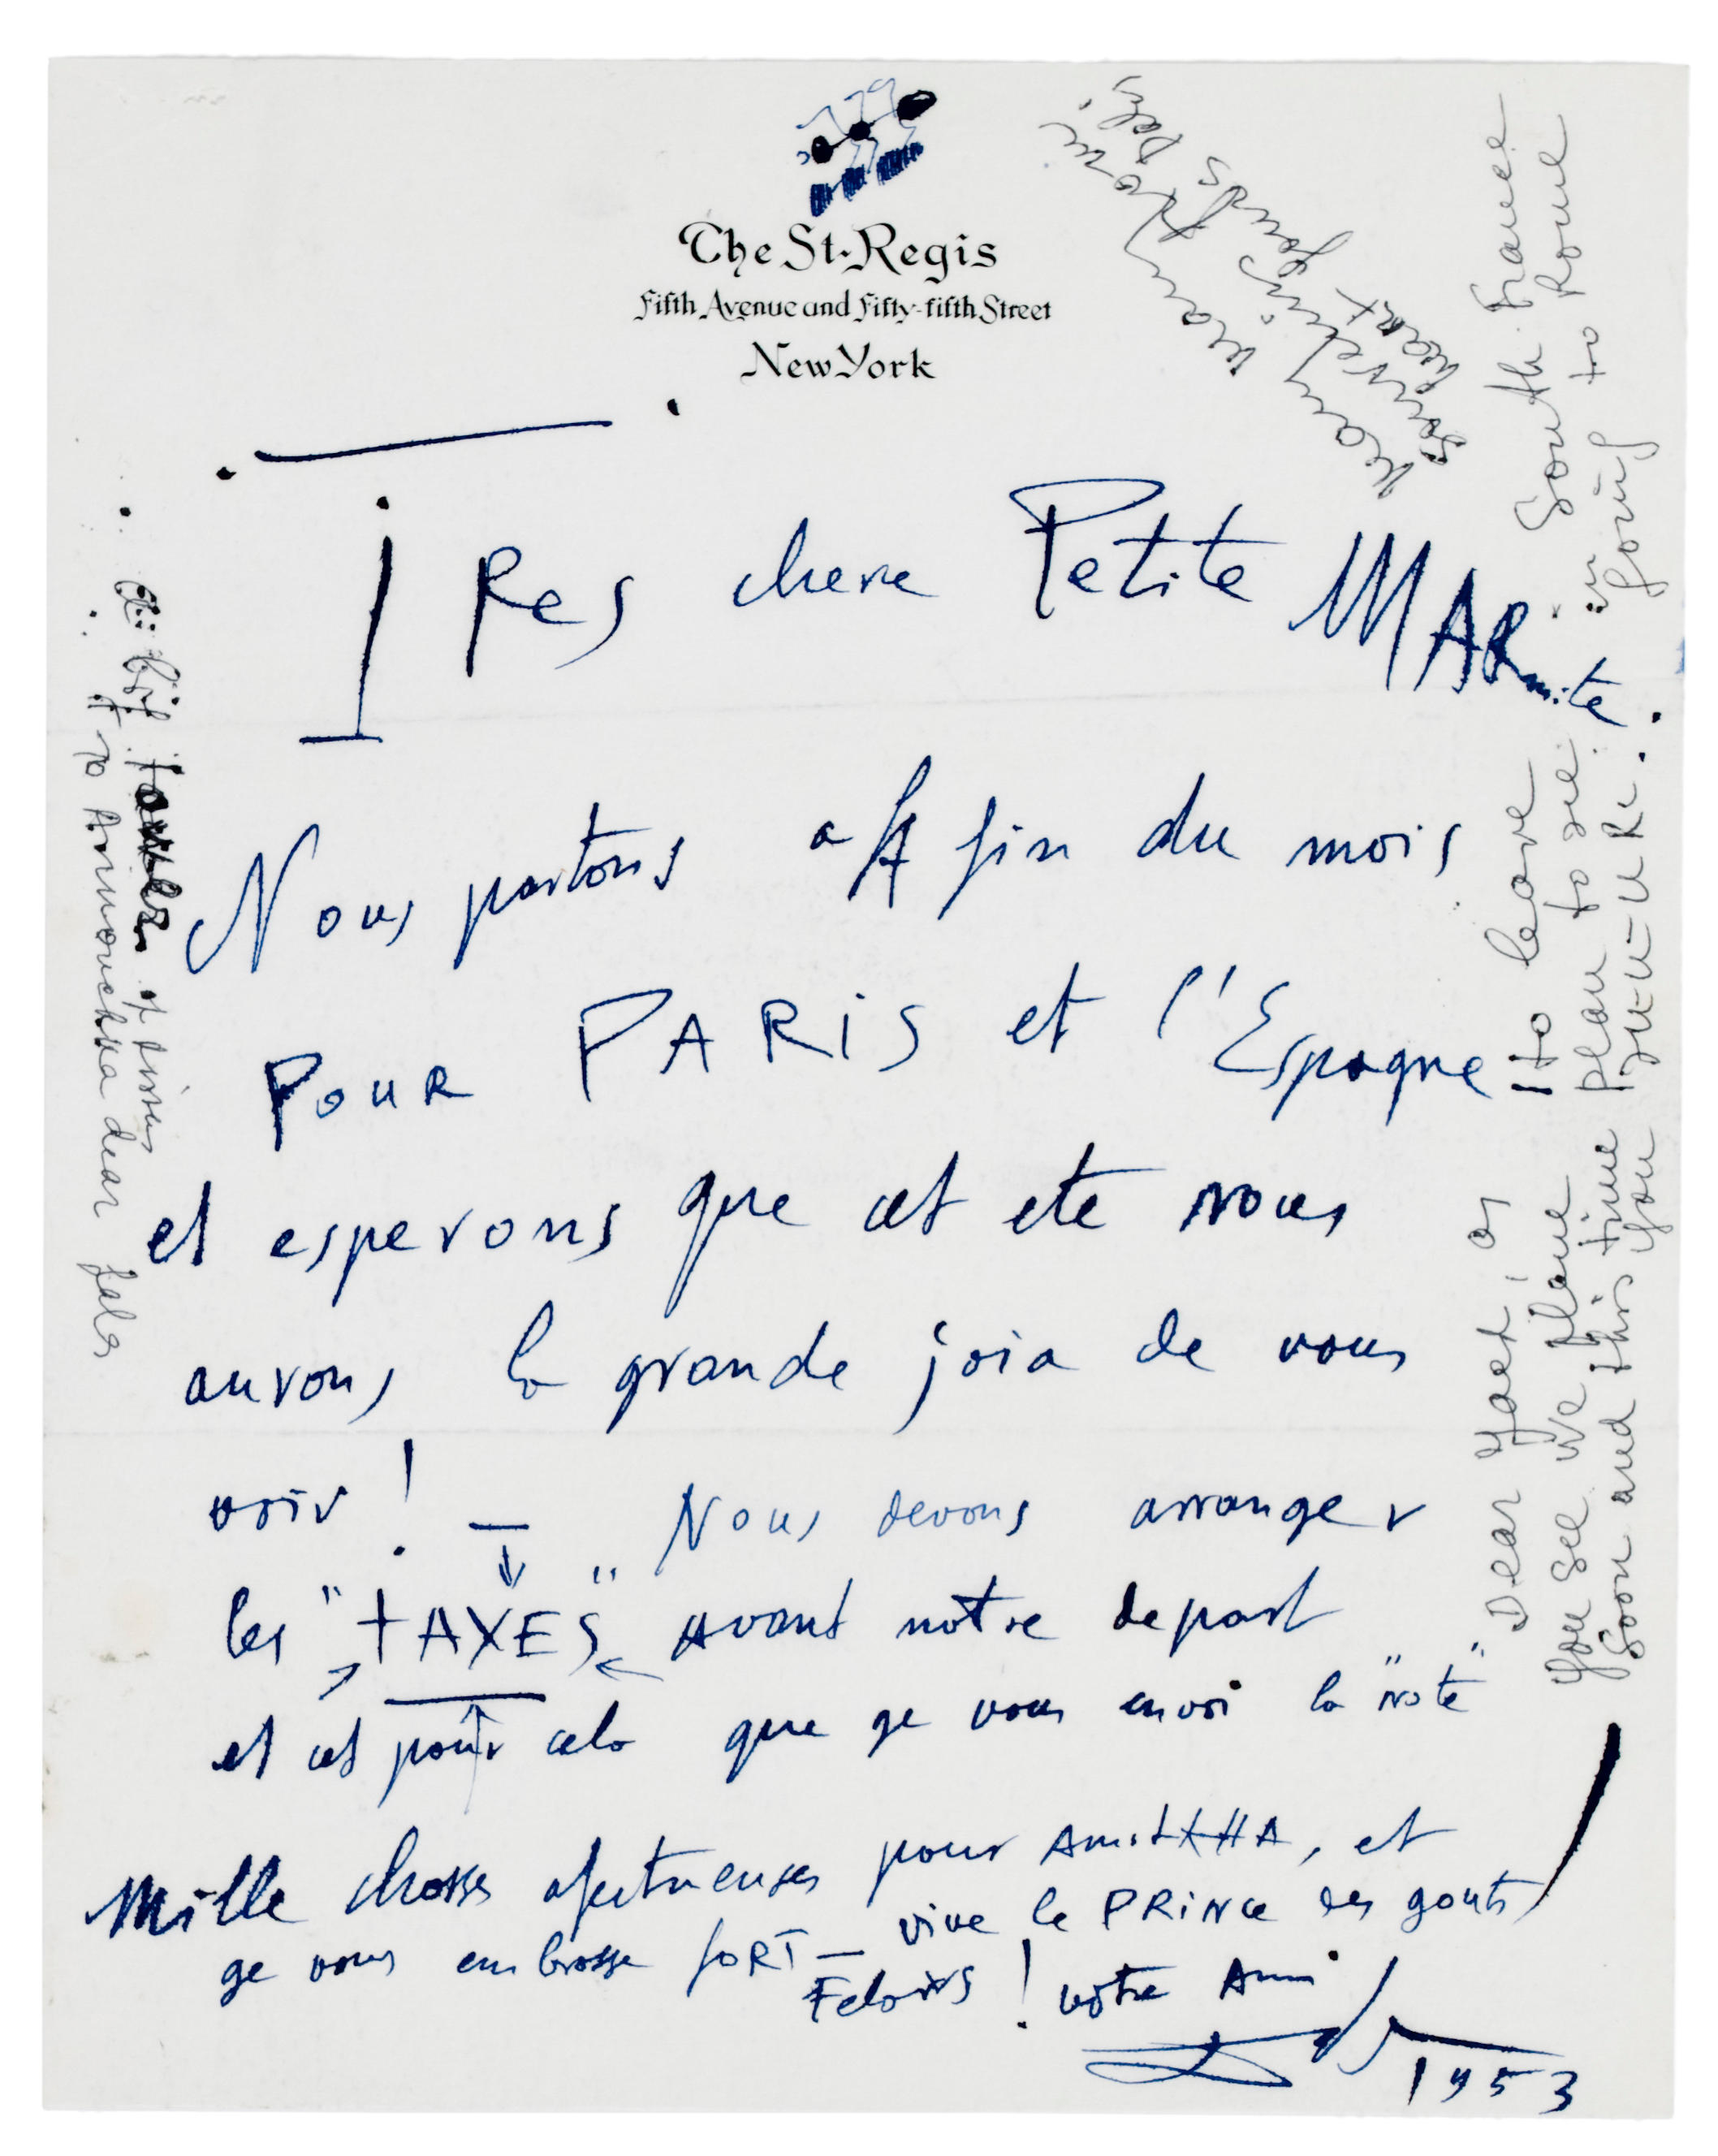 The St. Regis
Fifth Avenue and Fifty-fifth Street
New York
TRes chere Petite MARmite.
Nous partons a lA fin du mois
Pour PARiS et l'Espagne
et esperons que cet ete nous
aurons la grande joia de vous
voir! — Nous devons arranger
les "TAXES" avant notre depart
et cet pour cela que ge vous envoi la "note"
Mille chosses afectueuses pour , et
ge vous embrasse foRT — vive le PRiNce des gouts
! votre Ami
1953
Dear Yoed, as
you see we plane to leave
soon and this time plan to see
you in South France
going to Rome
many
many
heart
Dali
a big of
to Annouchka dear